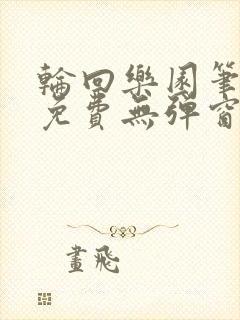 輪回樂園筆
免費無彈窗
畫飛